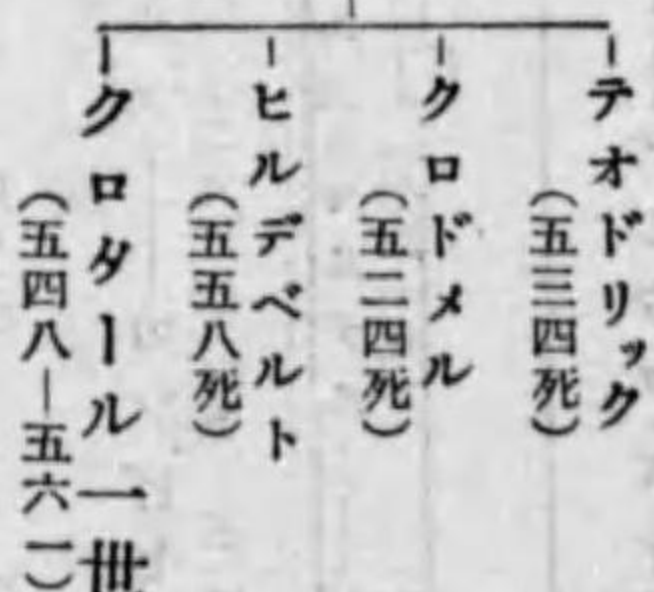 テオドリック
(五三四死)
クロドメル
(五二四死)
ヒルデベルト
(五五八死)
クロタール一世
(五四八―五六一)